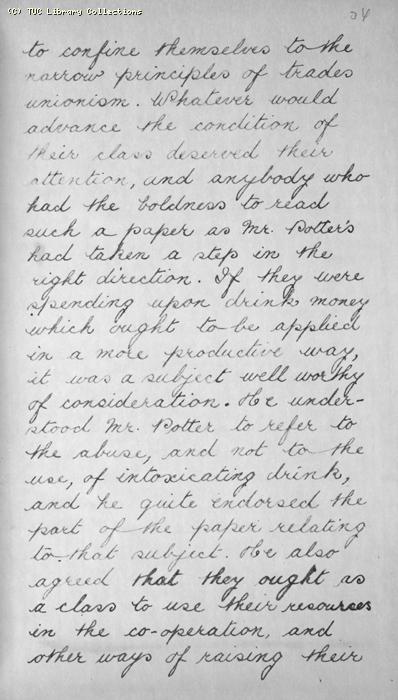 (C) TUC Library Collections
34
to confine themselves to the
narrow principles of trades
unionism. Whatever would
advance the condition of
their class deserved their
attention, and anybody who
had the boldness to read
such a paper as Mr. Potter's
had taken a step in the
right direction. If they were
spending upon drink money
which ought to be applied
in a more productive way,
it was a subject well worthy
of consideration. He under-
stood Mr. Potter to refer to
the abuse, and not to the
use, of intoxicating drink,
and he quite endorsed the
part of the paper relating
to that subject. He also
agreed that they ought as
a class to use their resourses
in the co-operation, and
other ways of raising their